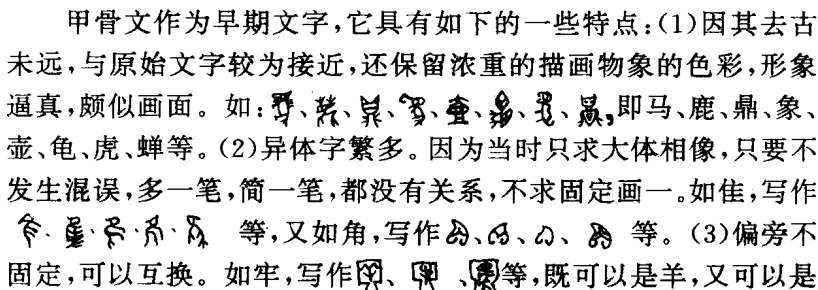 甲骨文作为早期文字,它具有如下的一些特点:(1)因其去古
未远,与原始文字较为接近,还保留浓重的描画物象的色彩,形象
逼真,颇似画面。如:、、、、、、、,即马、鹿、鼎、象、
壶、龟、虎、蝉等。(2)异体字繁多。因为当时只求大体相像,只要不
发生混误,多一笔,简一笔,都没有关系,不求固定画一。如隹,写作
· · · · 等,又如角,写作、、、 等。(3)偏旁不
固定,可以互换。如牢,写作、 、等,既可以是羊,又可以是